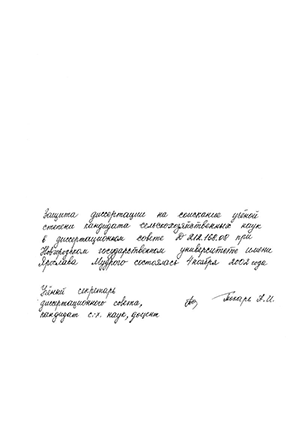 Защита диссертации на соискание учёной
степени кандидата сельскохозяйственных наук
в диссертационном совете Д 212.168.08 при
Новгородском государственном университете имени
Ярослава Мудрого состоялась 4 ноября 2002 года
Учёный секретарь
диссертационного совета,
кандидат с.-х. наук, доцент